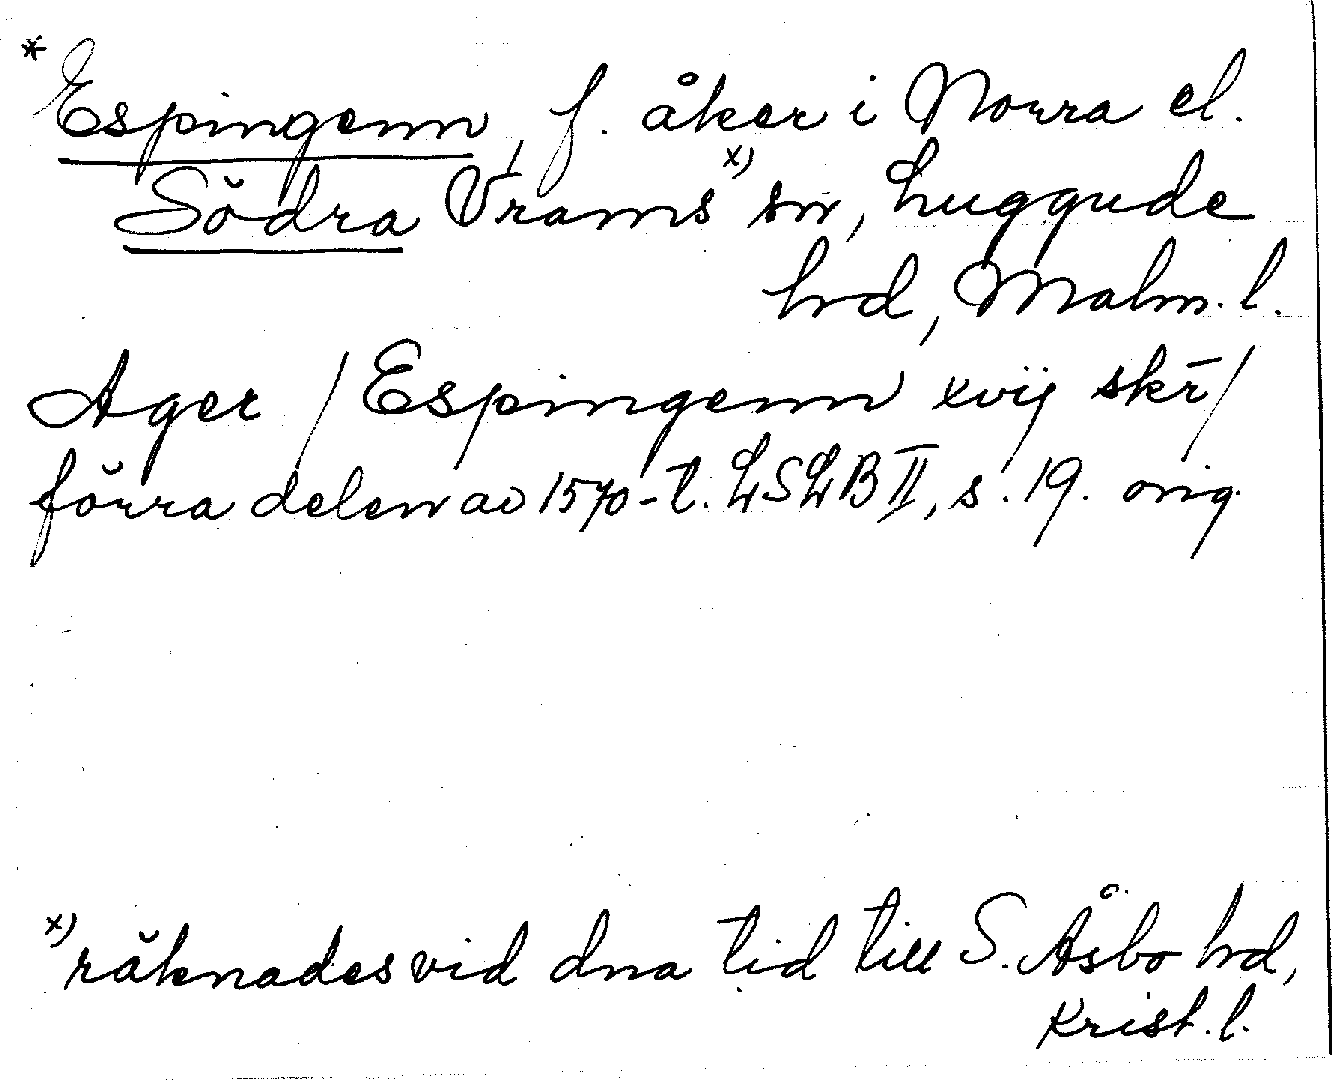 * Espingenn, f. åker i Norra el.
Södra Vrams x) sn, Luggude
hd, Malm. l.
Ager / Espingenn xvij skr̄ /
förra delen av 1570-t. LSLB II, s. 19. orig.
x) räknades vid dna tid till S. Åsbo hd,
Krist. l.